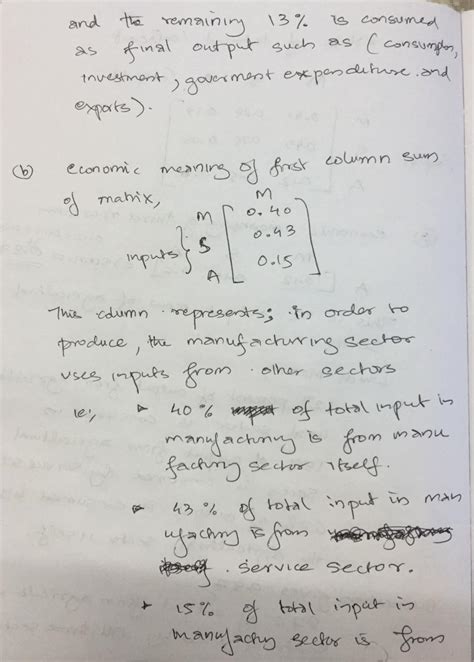 and the remaining 13% is consumed
as final output such as (consumption,
investment, goverment expenditure and
exports).
(b) economic meaning of first column sum
of matrix,
M
M 0.40
inputs} S 0.43
A 0.15
This column represents; in order to
produce, the manufacturing sector
uses inputs from other sectors
ie;, 40% of total input in
manufacturing is from manu
facturing sector itself.
43% of total input in man
ufacturing is from
service sector.
15% of total input in
manufacturing sector is from